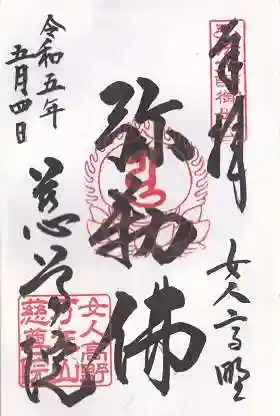 奉拝
女人高野
弥勒佛
慈尊院
令和五年
五月四日
女人高野
万年山
慈尊院